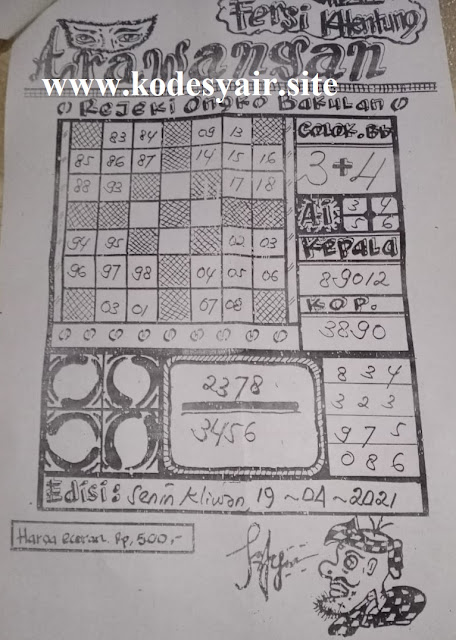 Fersi Khentung
Trawangan
www.kodesyair.site
Rejeki Ongko Bakulan
83 84 09 13
85 86 87 14 15 16
88 93 17 18
94 95 02 03
96 97 98 04 05 06
03 01 07 08
COLOK.BB
3+4
AI 3 4
5 6
KEPALA
8-9012
KOP.
3890
2378
3456
8 3 4
3 2 3
9 7 5
0 8 6
Edisi: Senin Kliwon 19-04-2021
Harga eceran Rp, 500,-